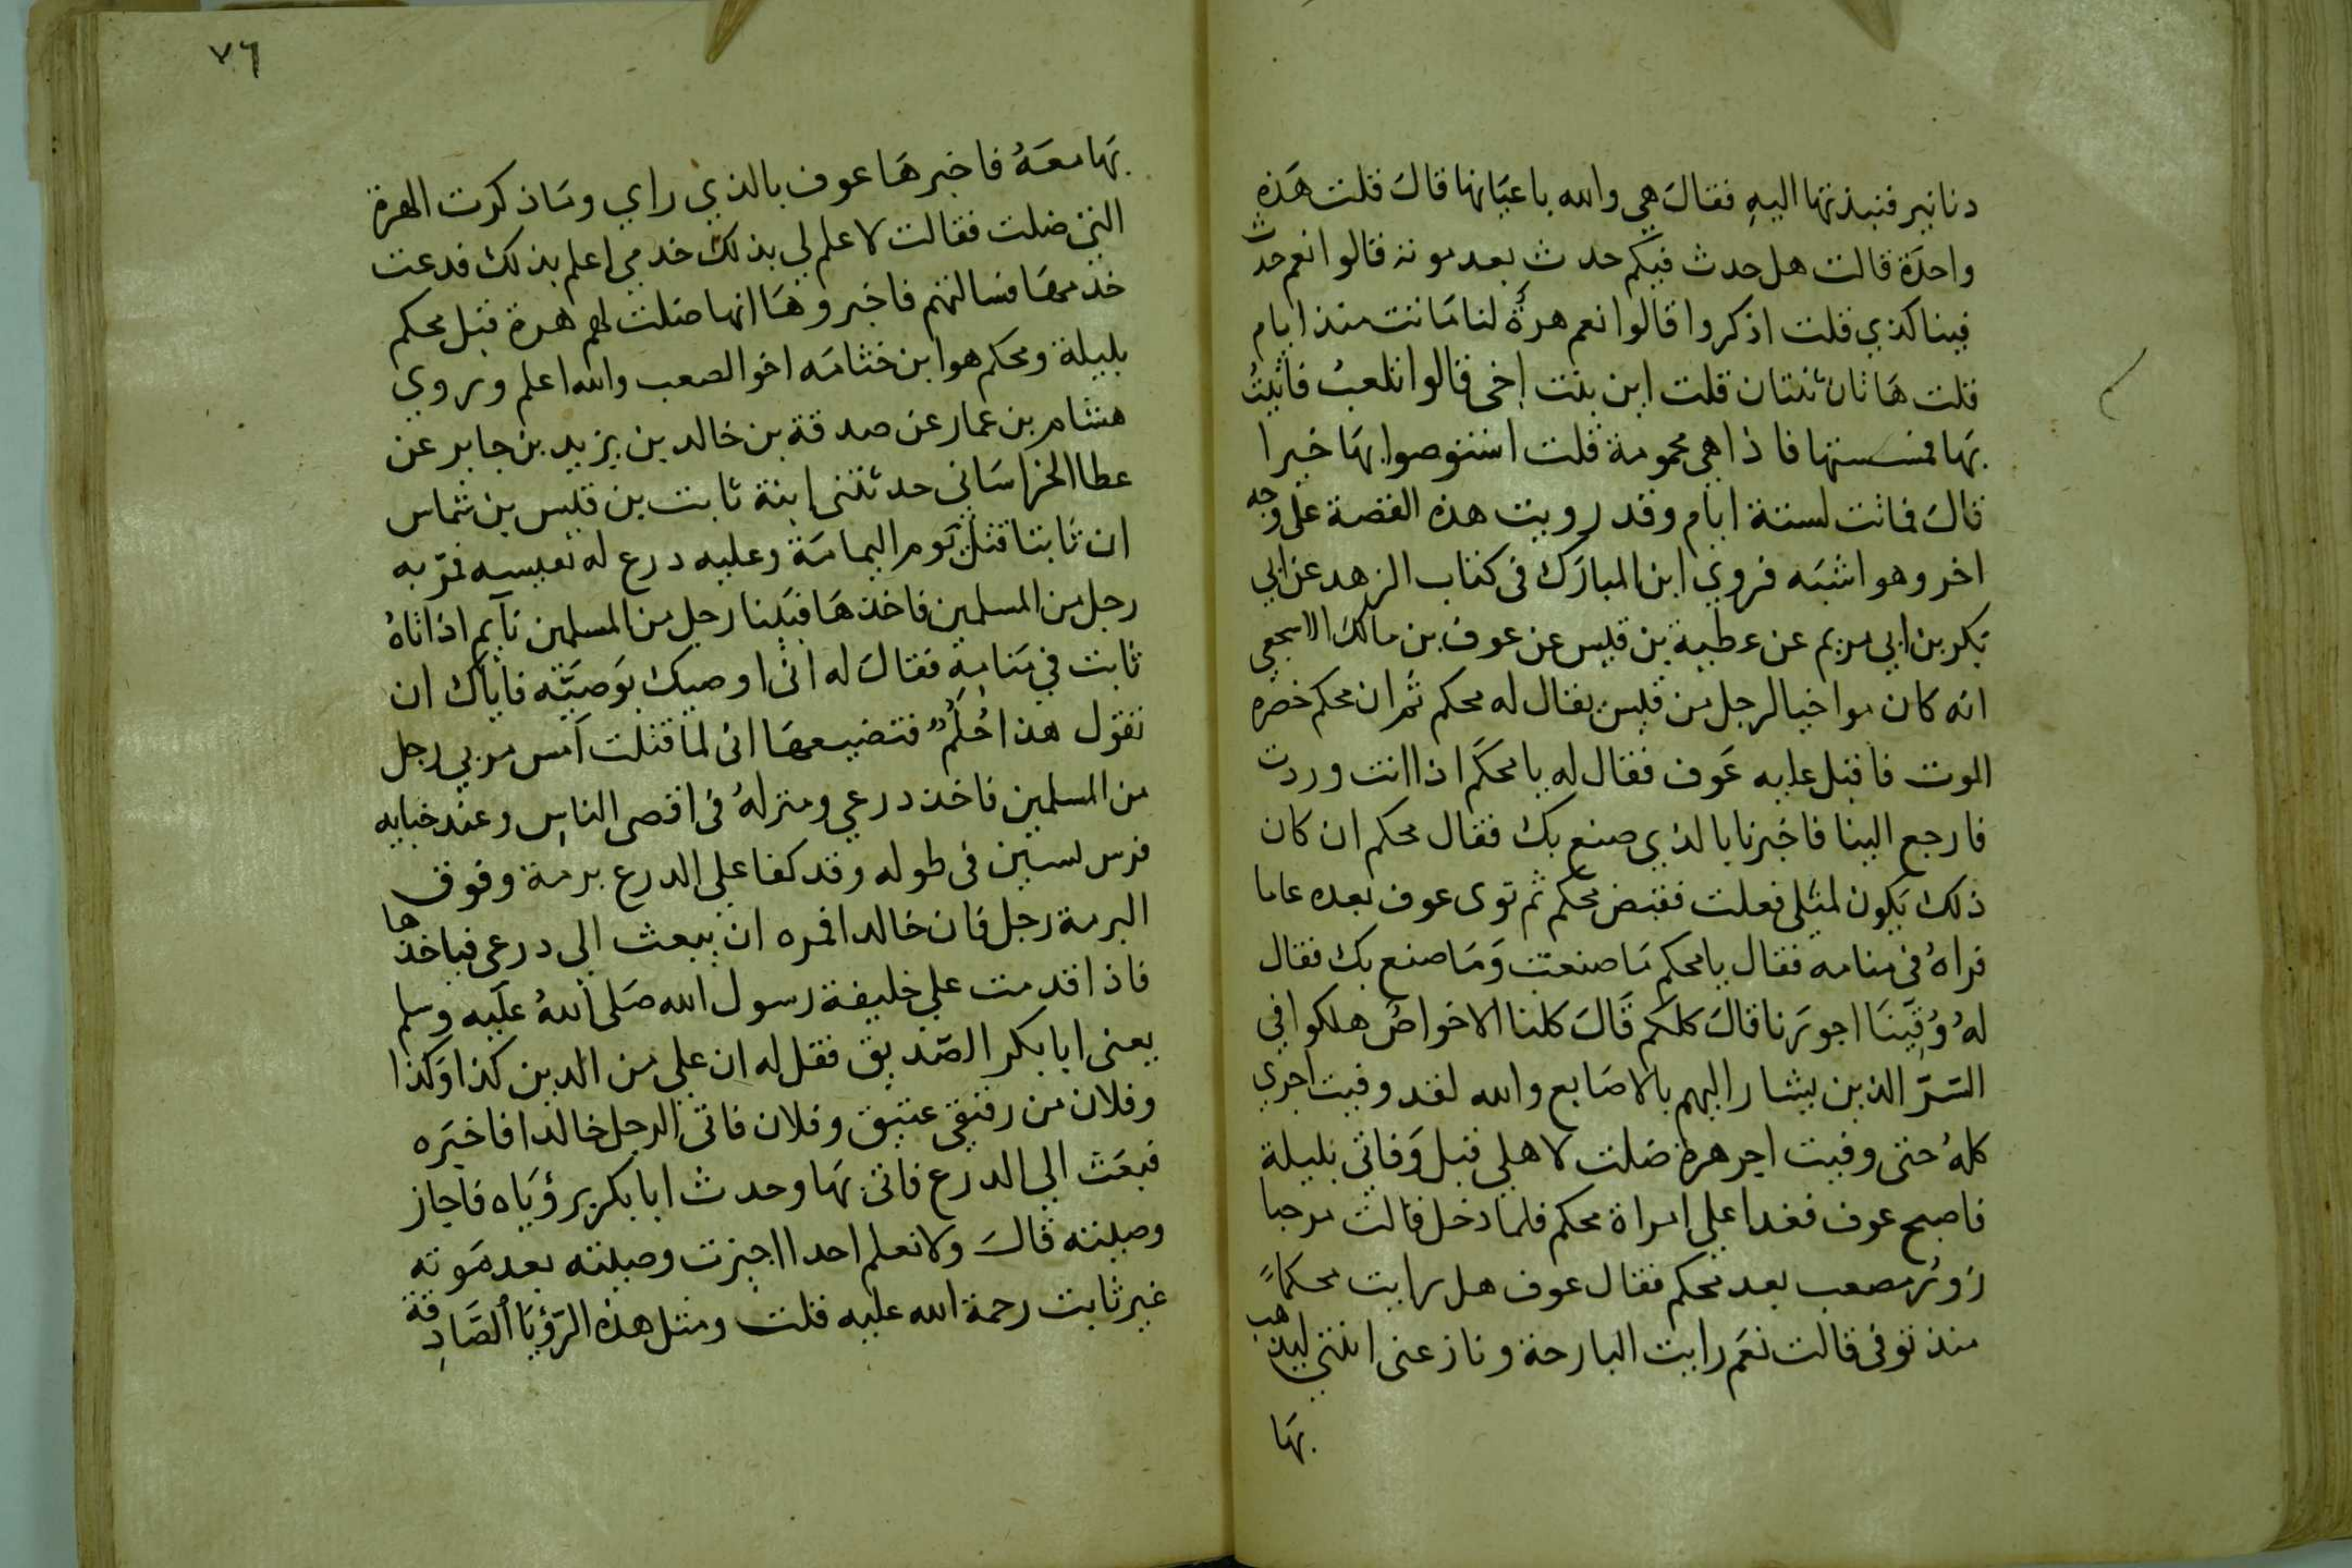 دنانير فنبذتها اليه فقال هي والله باعيانها قال قلت هذه
واحدة قالت هل حدث فيكم حدث بعد موته قالوا نعم حدث
فينا كذي قلت اذكروا قالوا نعم هرة لنا ماتت منذ ايام
قلت هاتان ثنتان قلت اين بنت اخي قالوا تلعب فاتيت
بها فمسستها فاذا هي محمومة قلت استوصوا بها خيرا
قال فماتت لستة ايام وقد رويت هذه القصة على وجه
اخر وهو اشبه فروي ابن المبارك في كتاب الزهد عن ابي
بكر بن ابي مريم عن عطية بن قيس عن عوف بن مالك الاشجعي
انه كان مواخيا لرجل من قيس يقال له محكم ثم ان محكم حضره
الموت فاقبل عليه عوف فقال له يا محكم اذا انت وردت
فارجع الينا فاخبرنا بالذي صنع بك فقال محكم ان كان
ذلك يكون لمثلي فعلت فقبض محكم ثم توى عوف بعده عاما
فراه في منامه فقال يا محكم ما صنعت وما صنع بك فقال
له وُفّينا اجورنا قال كلكم قال كلنا الا خواص هلكوا في
الشرّ الذين يشار اليهم بالاصابع والله لقد وفيت اجري
كله حتى وفيت اجر هرة ضلت لاهلي قبل وفاتي بليلة
فاصبح عوف فغدا على امراة محكم فلما دخل قالت مرحبا
زور مصعب بعد محكم فقال عوف هل رايت محكماً
منذ توفي قالت نعم رايت البارحة ونازعني ابنتي ليذهب
بها
٧٦
بها معه فاخبرها عوف بالذي راي وما ذكرت الهرة
التي ضلت فقالت لا علم لي بذلك خدمي اعلم بذلك فدعت
خدمها فسالتهم فاخبروها انها ضلت لهم هرة قبل محكم
بليلة ومحكم هو ابن خثامه اخو الصعب والله اعلم وروي
هشام بن عمار عن صدقة بن خالد بن يزيد بن جابر عن
عطا الخراساني حدثتني ابنة ثابت بن قيس بن شماس
ان ثابتا قتل يوم اليمامة وعليه درع له نفيسه فمرّ به
رجل من المسلمين فاخذها فبينا رجل من المسلمين نآيم اذ اتاه
ثابت في منامه فقال له اني اوصيك بوصيّه فاياك ان
تقول هذا حُلُمٌ فتضيعها اني لما قتلت امس مر بي رجل
من المسلمين فاخذ درعي ومنزله في اقصى الناس وعند خبايه
فرس يستن في طوله وقد كفا على الدرع برمة وفوق
البرمة رجل فان خالدا فمره ان يبعث الي درعي فياخذها
فاذا قدمت علي خليفة رسول الله صلى الله عليه وسلم
يعني ابا بكر الصديق فقل له ان علي من الدين كذا وكذا
وفلان من رفيقي عتيق وفلان فاتى الرجل خالدا فاخبره
فبعث الي الدرع فاتى بها وحدث ابا بكر برؤياه فاجاز
وصيته قال ولا نعلم احدا اجيزت وصيته بعد موته
غير ثابت رحمة الله عليه قلت ومثل هذه الرّؤيا الصّادقة